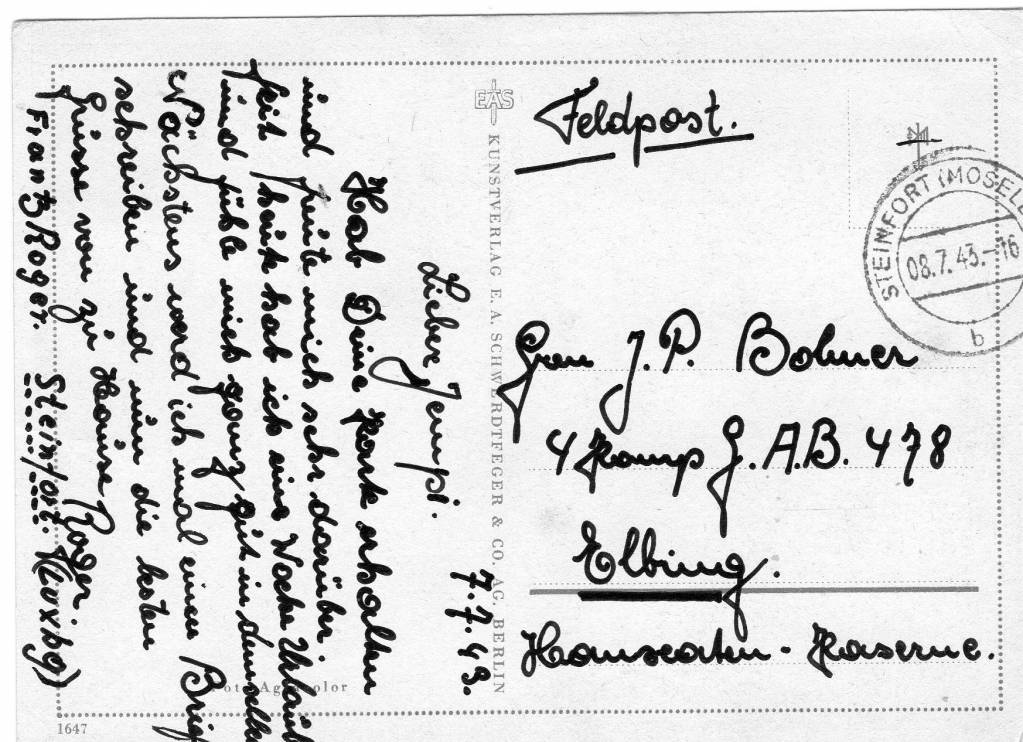 Feldpost.
EAS
STEINFORT (MOSEL
08.7.43.-16
b
J. P. Bohmer
4 Komp G. A.B. 478
Elbing.
Hanseaten - Kaserne.
KUNSTVERLAG E. A. SCHWERDTFEGER & CO. AG. BERLIN
7.7.43.
Lieber Jempi.
Hab Deine Karte erhalten
und freute mich sehr darüber.
seit heute hab ich eine Woche Uhrlaub
und fühle mich ganz gut in
Nächstens werd ich mal einen Brief
schreiben und nun die besten
Grüsse von zu Hause Roger.
Frantz Roger. Steinfort.
Foto Agfacolor
1647